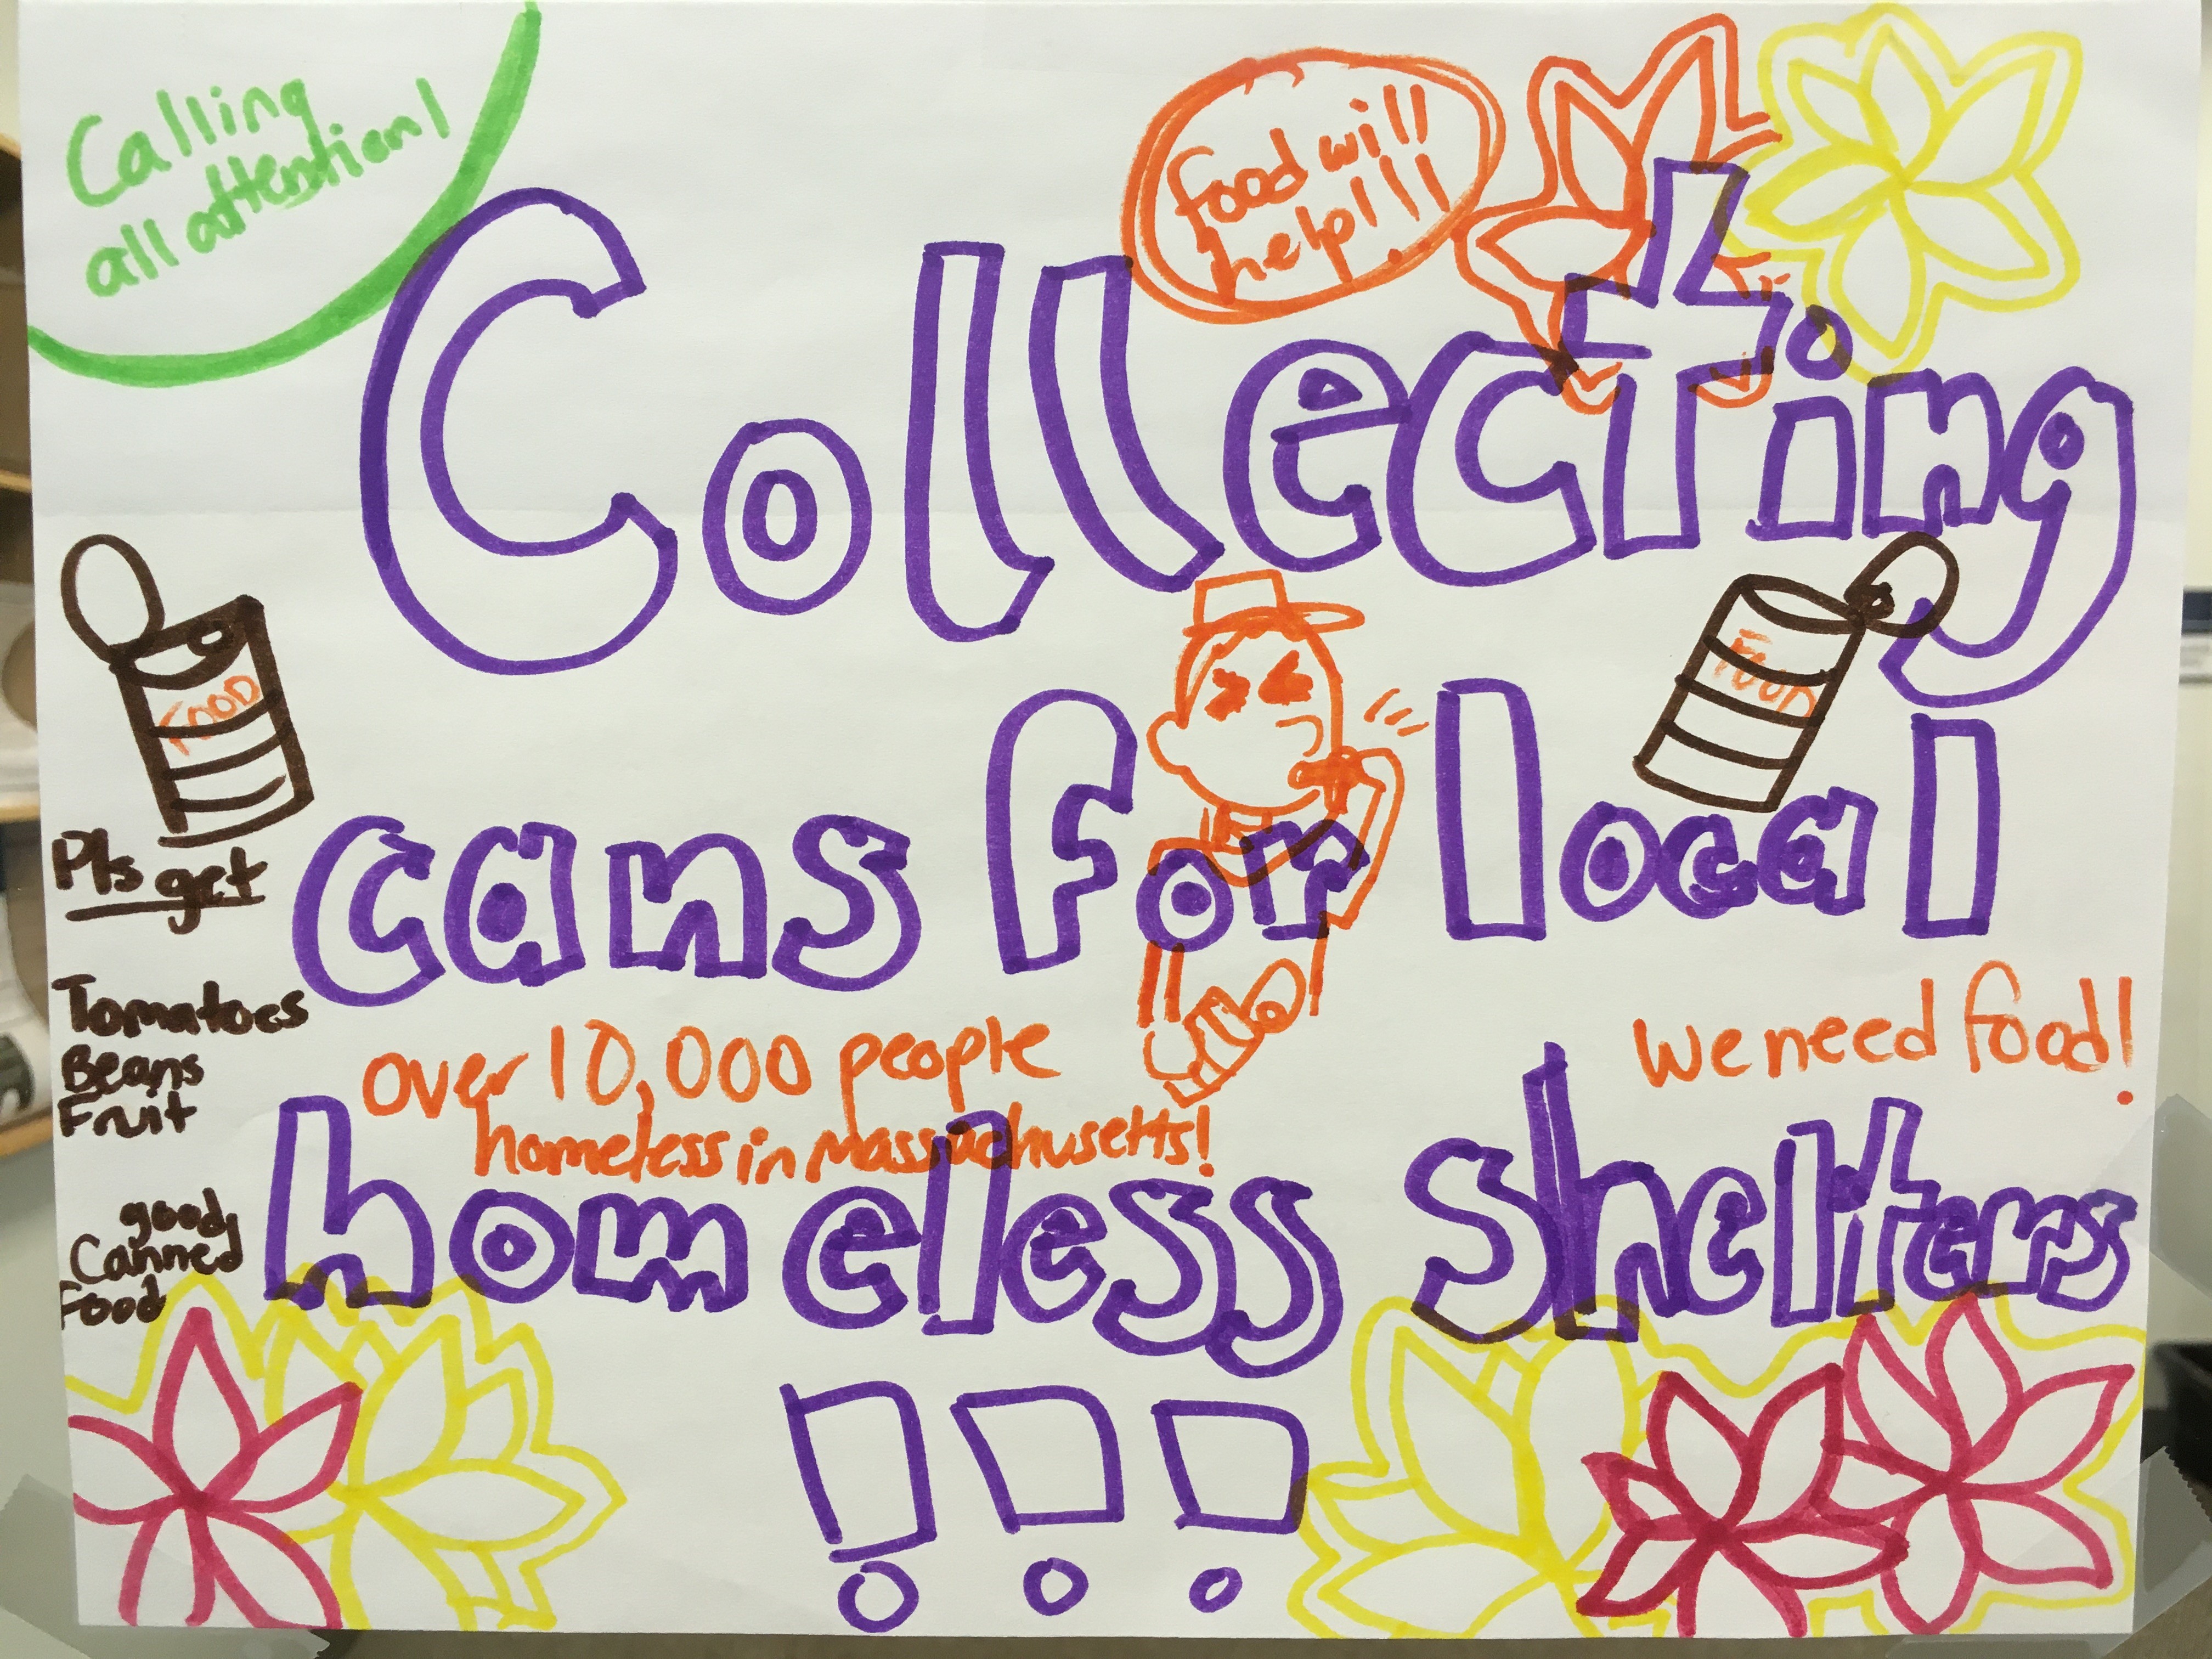 Calling
all attention!
Food will
help!!!
Collecting
FOOD
FOOD
cans for local
Pls get
Tomatoes
Beans
Fruit
good
Canned
Food
over 10,000 people
homeless in Massachusetts!
We need food!
homeless shelters
!!!